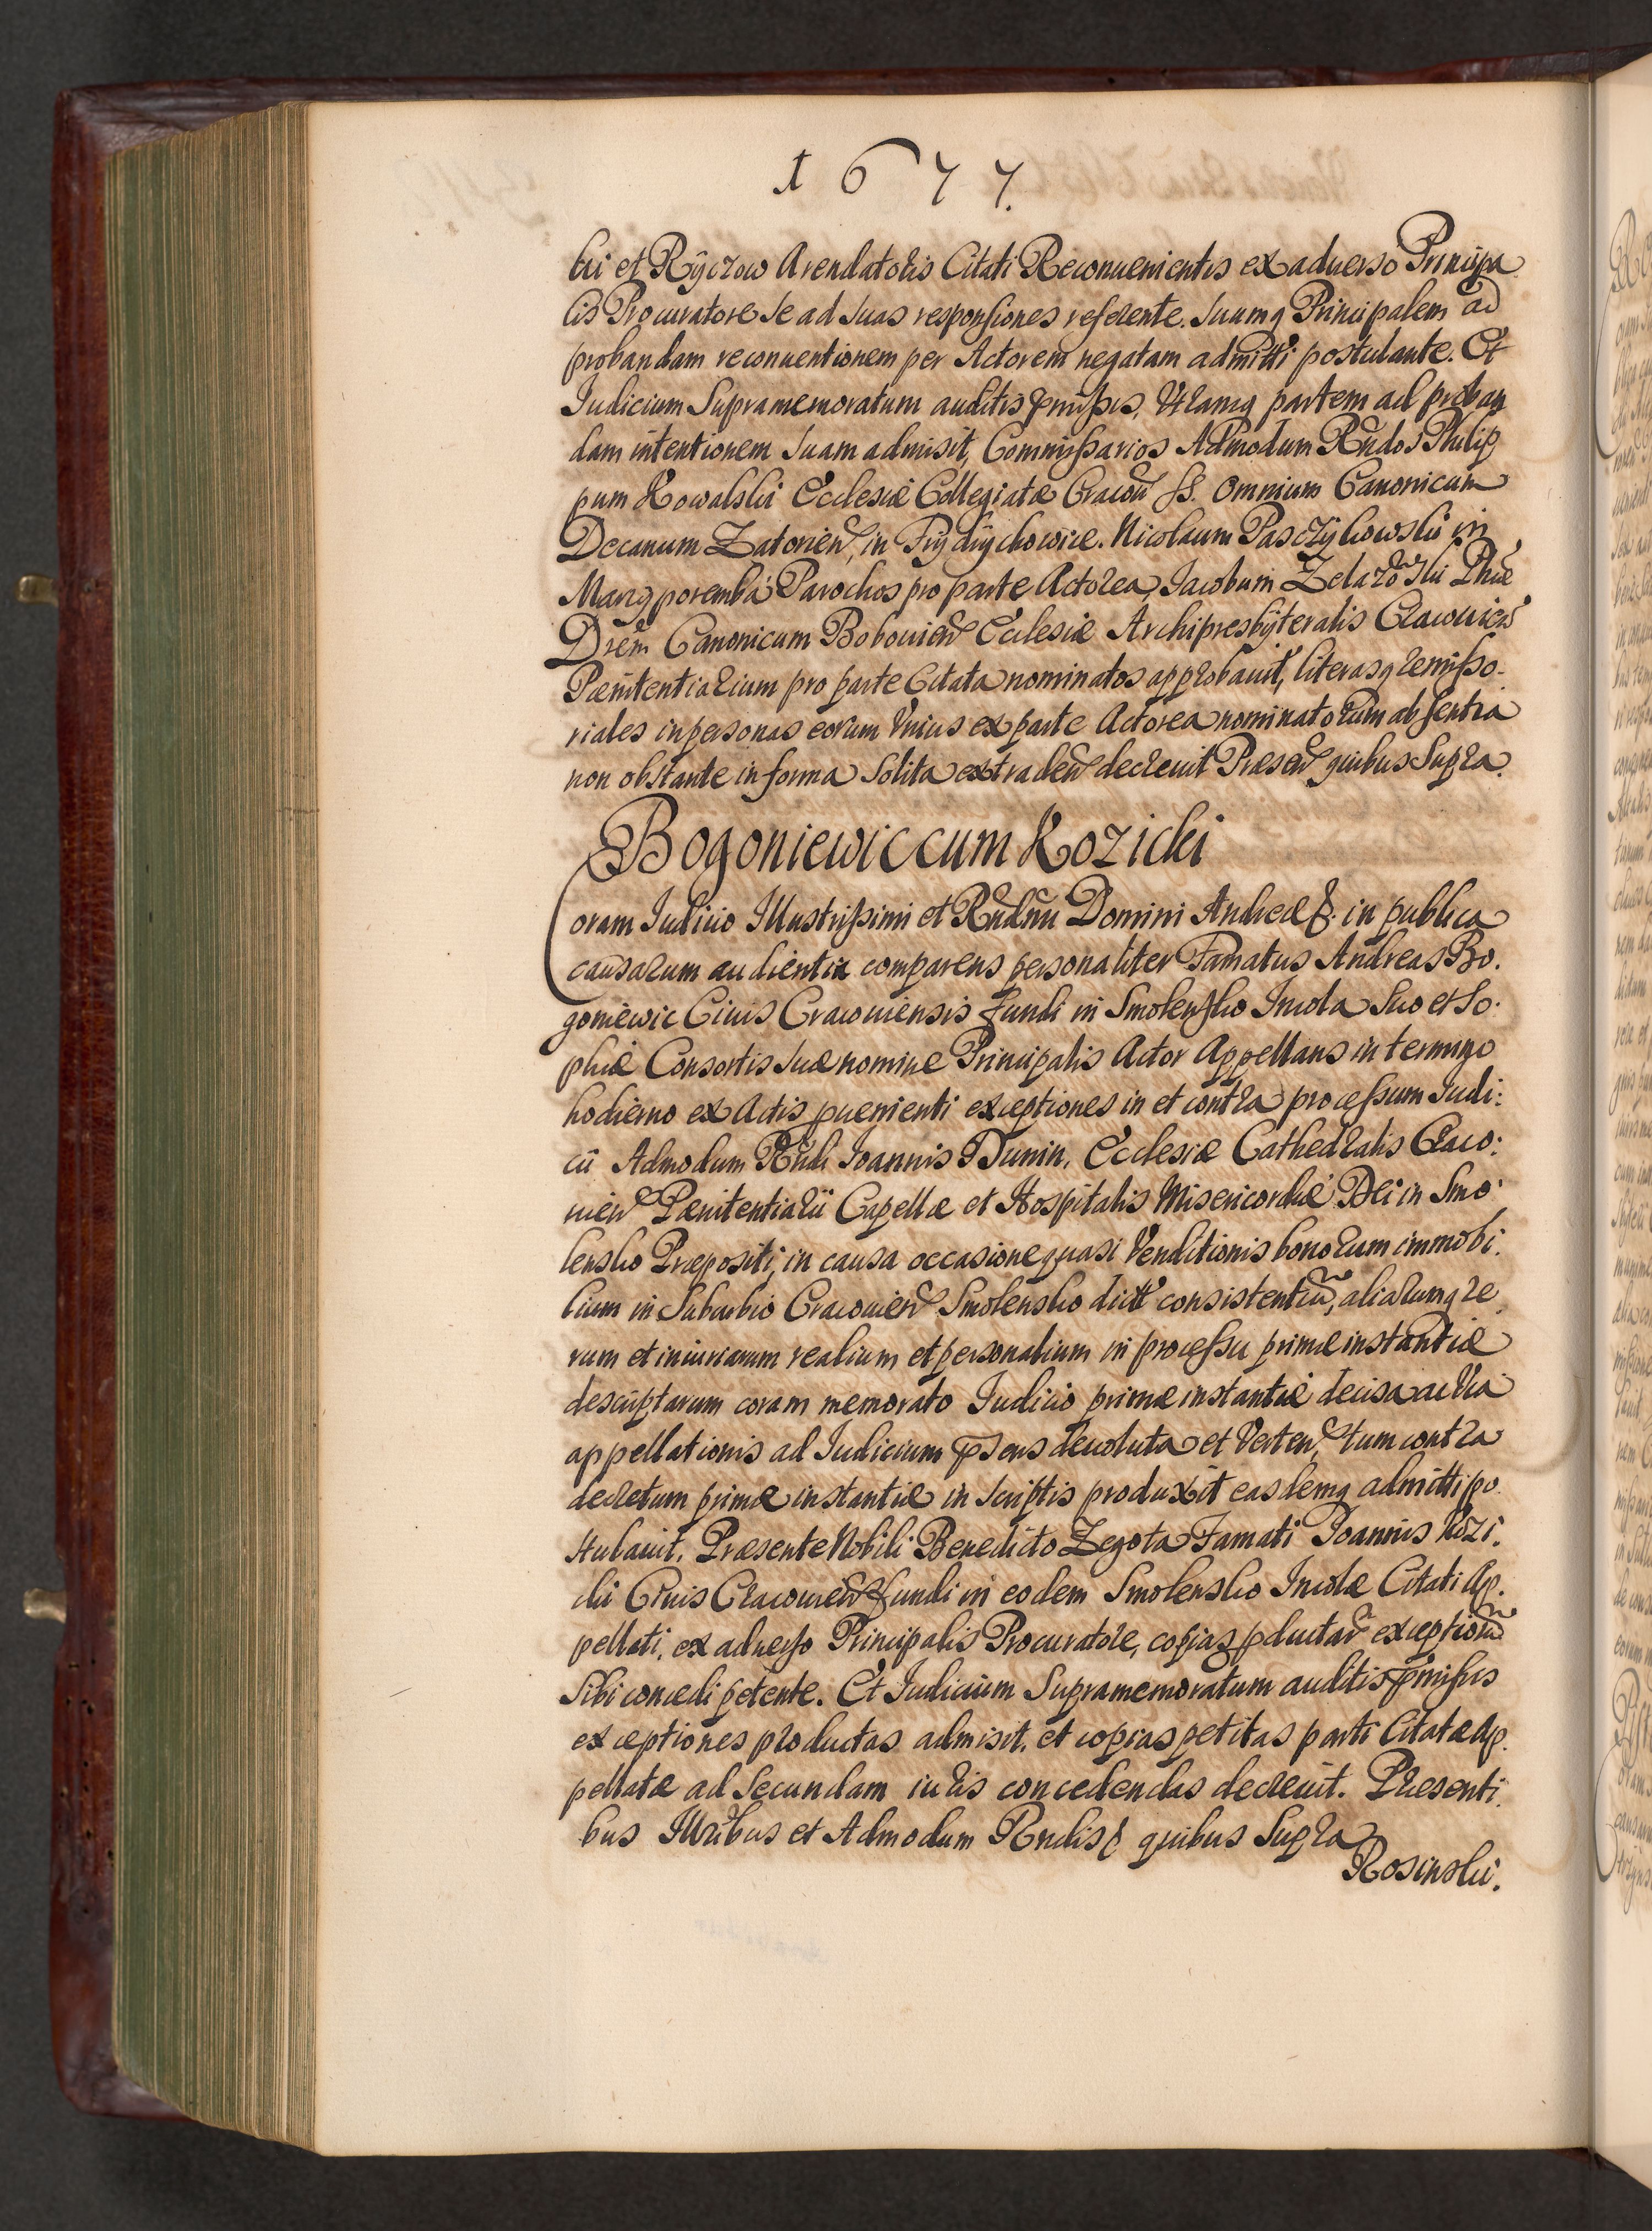 1677.
ki et Ryczow Arendatoris Citati Reconuenientis ex aduerso Principa
lis Procuratore se ad suas responsiones referente. Suumq Principalem ad
probandam reconuentionem per Actorem negatam admitti postulante. Et
Iudicium Supramemoratum auditis pmissis, Utramq partem ad proban
dam intentionem suam admisit, Commissarios Admodum Rndos Philip
pum Kowalski Ecclesiæ Collegiatæ Cracou SS. Omnium Canonicum
Decanum Zatorien, in Frydrychowice. Nicolaum Paschykowski in
Marcyporemba Parochos pro parte Actorea, Iacobum Zelazowski Phiæ
Drem Canonicum Bobouien Ecclesiæ Archipresbyteralis Cracouien
Pænitentiarium pro parte Citata nominatos approbauit, literasq remisso-
riales in personas eorum Vnius ex parte Actorea nominatorum absentia
non obstante in forma Solita extraden decreuit Præsen quibus Supra.
Bogoniewic cum Kozicki
Coram Iudicio Illustrissimi et Rndmi Domini Andreæ &. in publica
causarum audientia comparens personaliter Famatus Andreas Bo.
goniewic Ciuis Cracouiensis fundi in Smolensko Incola Suo et So.
phiæ Consortis Suæ nomine Principalis Actor Appellans in termino
hodierno ex Actis puenienti exceptiones in et contra processum Iudi:
cii Admodum Rndi Ioannis Dunin, Ecclesiæ Cathedralis Craco:
uien Pænitentiarii Capellæ et Hospitalis Misericordiæ Dei in Smo:
lensko Præpositi, in causa occasione quasi Venditionis bonorum immobi.
lium in Suburbio Cracouien Smolensko dict consistentiu, aliarumq re
rum et iniuriarum realium et personalium in processu primæ instantiæ
descriptarum coram memorato Iudicio primæ instantiæ decisa ac Via
appellationis ad Iudicium psens deuoluta et Verten, tum contra
decretum primæ instantiæ in scriptis produxit easdemq admitti po
stulauit. Præsente Nobili Benedicto Zegota Famati Ioannis Kozi:
cki Ciuis Cracouien fundi in eodem Smolensko Incolæ Citati Ap.
pellati, ex aduerso Principalis Procuratore, copias pductar exceptionu
Sibi concedi petente. Et Iudicium Supramemoratum auditis pmissis
exceptiones productas admisit, et copias petitas parti Citatæ Ap.
pellatæ ad Secundam iuris concedendas decreuit. Præsenti.
bus Illribus et Admodum Rndis & quibus Supra
Rosinski.